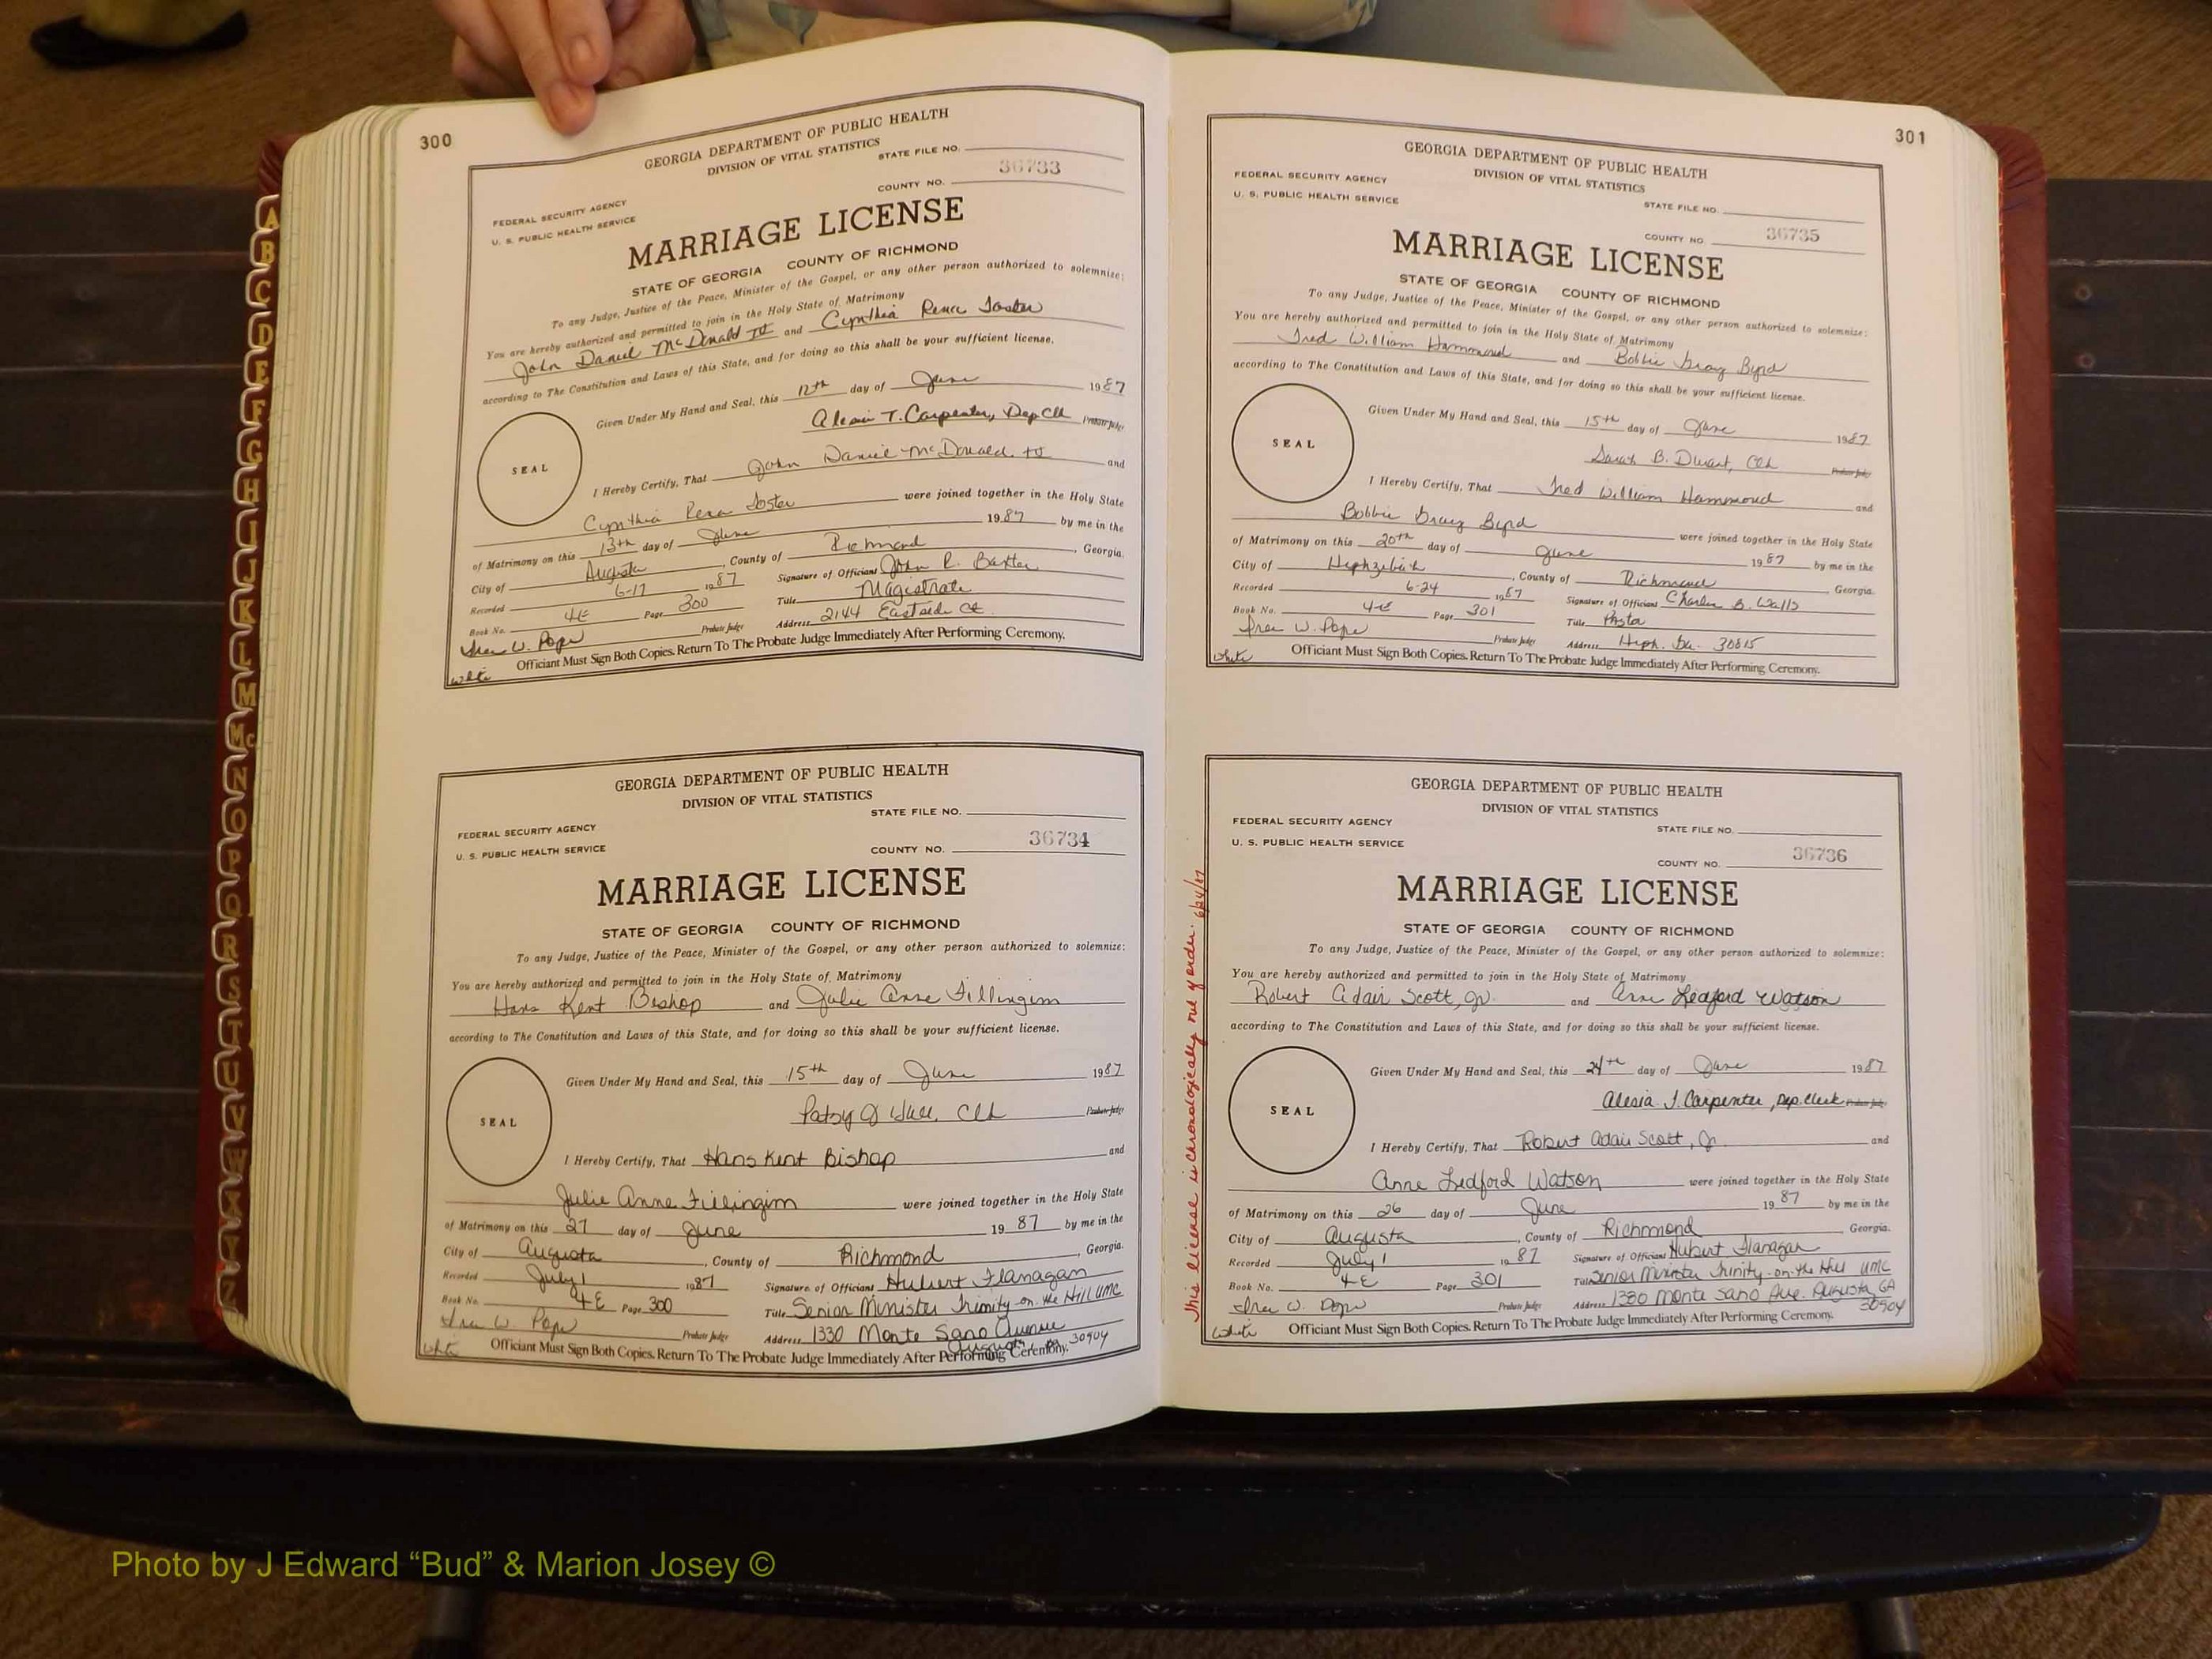 300
GEORGIA DEPARTMENT OF PUBLIC HEALTH
DIVISION OF VITAL STATISTICS
STATE FILE NO.
36733
COUNTY NO.
FEDERAL SECURITY AGENCY
U. S. PUBLIC HEALTH SERVICE
MARRIAGE LICENSE
STATE OF GEORGIA COUNTY OF RICHMOND
To any Judge, Justice of the Peace, Minister of the Gospel, or any other person authorized to solemnize:
You are hereby authorized and permitted to join in the Holy State of Matrimony
John Daniel McDonald and Cynthia Rena Foster
according to The Constitution and Laws of this State, and for doing so this shall be your sufficient license.
Given Under My Hand and Seal, this 12th day of June 1987
T. Carpenter, Dep Clk Probate Judge
SEAL
I Hereby Certify, That John Daniel McDonald and
Cynthia Rena Foster were joined together in the Holy State
of Matrimony on this 13th day of June 1987 by me in the
City of Augusta, County of Richmond, Georgia.
Recorded 6-17 1987 Signature of Officiant John R. Baxter
Book No. 4E Page 300 Title Magistrate
W. Pope Probate Judge Address 2144 Eastside Ct.
Officiant Must Sign Both Copies. Return To The Probate Judge Immediately After Performing Ceremony.
white
GEORGIA DEPARTMENT OF PUBLIC HEALTH
DIVISION OF VITAL STATISTICS
STATE FILE NO.
FEDERAL SECURITY AGENCY
36734
U. S. PUBLIC HEALTH SERVICE COUNTY NO.
MARRIAGE LICENSE
STATE OF GEORGIA COUNTY OF RICHMOND
To any Judge, Justice of the Peace, Minister of the Gospel, or any other person authorized to solemnize:
You are hereby authorized and permitted to join in the Holy State of Matrimony
Hans Kent Bishop and Julie Anne Fillingim
according to The Constitution and Laws of this State, and for doing so this shall be your sufficient license.
Given Under My Hand and Seal, this 15th day of June 1987
Patsy Clk Probate Judge
SEAL
I Hereby Certify, That Hans Kent Bishop and
Julie Anne Fillingim were joined together in the Holy State
of Matrimony on this 27 day of June 1987 by me in the
City of Augusta, County of Richmond, Georgia.
Recorded July 1 1987 Signature of Officiant Hubert Flanagan
Book No. 4E Page 300 Title Senior Minister Trinity-on-the Hill UMC
W. Pope Probate Judge Address 1330 Monte Sano Avenue
Augusta, Ga 30904
Officiant Must Sign Both Copies. Return To The Probate Judge Immediately After Performing Ceremony.
white
301
GEORGIA DEPARTMENT OF PUBLIC HEALTH
DIVISION OF VITAL STATISTICS
FEDERAL SECURITY AGENCY
U. S. PUBLIC HEALTH SERVICE
STATE FILE NO.
COUNTY NO. 36735
MARRIAGE LICENSE
STATE OF GEORGIA COUNTY OF RICHMOND
To any Judge, Justice of the Peace, Minister of the Gospel, or any other person authorized to solemnize:
You are hereby authorized and permitted to join in the Holy State of Matrimony
Fred William Hammond and Bobbie Gray Byrd
according to The Constitution and Laws of this State, and for doing so this shall be your sufficient license.
Given Under My Hand and Seal, this 15th day of June 1987
Sarah B. Clk Probate Judge
SEAL
I Hereby Certify, That Fred William Hammond and
Bobbie Gray Byrd were joined together in the Holy State
of Matrimony on this 20th day of June 1987 by me in the
City of Hephzibah, County of Richmond Georgia.
Recorded 6-24 1987 Signature of Officiant Charles B. Walls
Book No. 4-E Page 301 Title Pastor
W. Pope Probate Judge Address Heph. Ga. 30815
Officiant Must Sign Both Copies. Return To The Probate Judge Immediately After Performing Ceremony.
white
This license is chronologically out of order. 6/24/87
GEORGIA DEPARTMENT OF PUBLIC HEALTH
DIVISION OF VITAL STATISTICS
FEDERAL SECURITY AGENCY
STATE FILE NO.
U. S. PUBLIC HEALTH SERVICE
COUNTY NO. 36736
MARRIAGE LICENSE
STATE OF GEORGIA COUNTY OF RICHMOND
To any Judge, Justice of the Peace, Minister of the Gospel, or any other person authorized to solemnize:
You are hereby authorized and permitted to join in the Holy State of Matrimony
Robert Adair Scott, Jr. and Anne Ledford Watson
according to The Constitution and Laws of this State, and for doing so this shall be your sufficient license.
Given Under My Hand and Seal, this 24th day of June 1987
Alesia T. Carpenter, Dep. Clerk Probate Judge
SEAL
I Hereby Certify, That Robert Adair Scott, Jr. and
Anne Ledford Watson were joined together in the Holy State
of Matrimony on this 26 day of June 1987 by me in the
City of Augusta, County of Richmond Georgia.
Recorded July 1 1987 Signature of Officiant Hubert Flanagan
Book No. 4E Page 301 Title Senior Minister Trinity-on-the Hill UMC
W. Pope Probate Judge Address 1330 Monte Sano Ave. Augusta, GA
30904
Officiant Must Sign Both Copies. Return To The Probate Judge Immediately After Performing Ceremony.
white
A
B
C
D
E
F
G
H
I
J
K
L
M
Mc
N
O
P
Q
R
S
T
U
V
W
X
Y
Z
Photo by J Edward “Bud” & Marion Josey ©